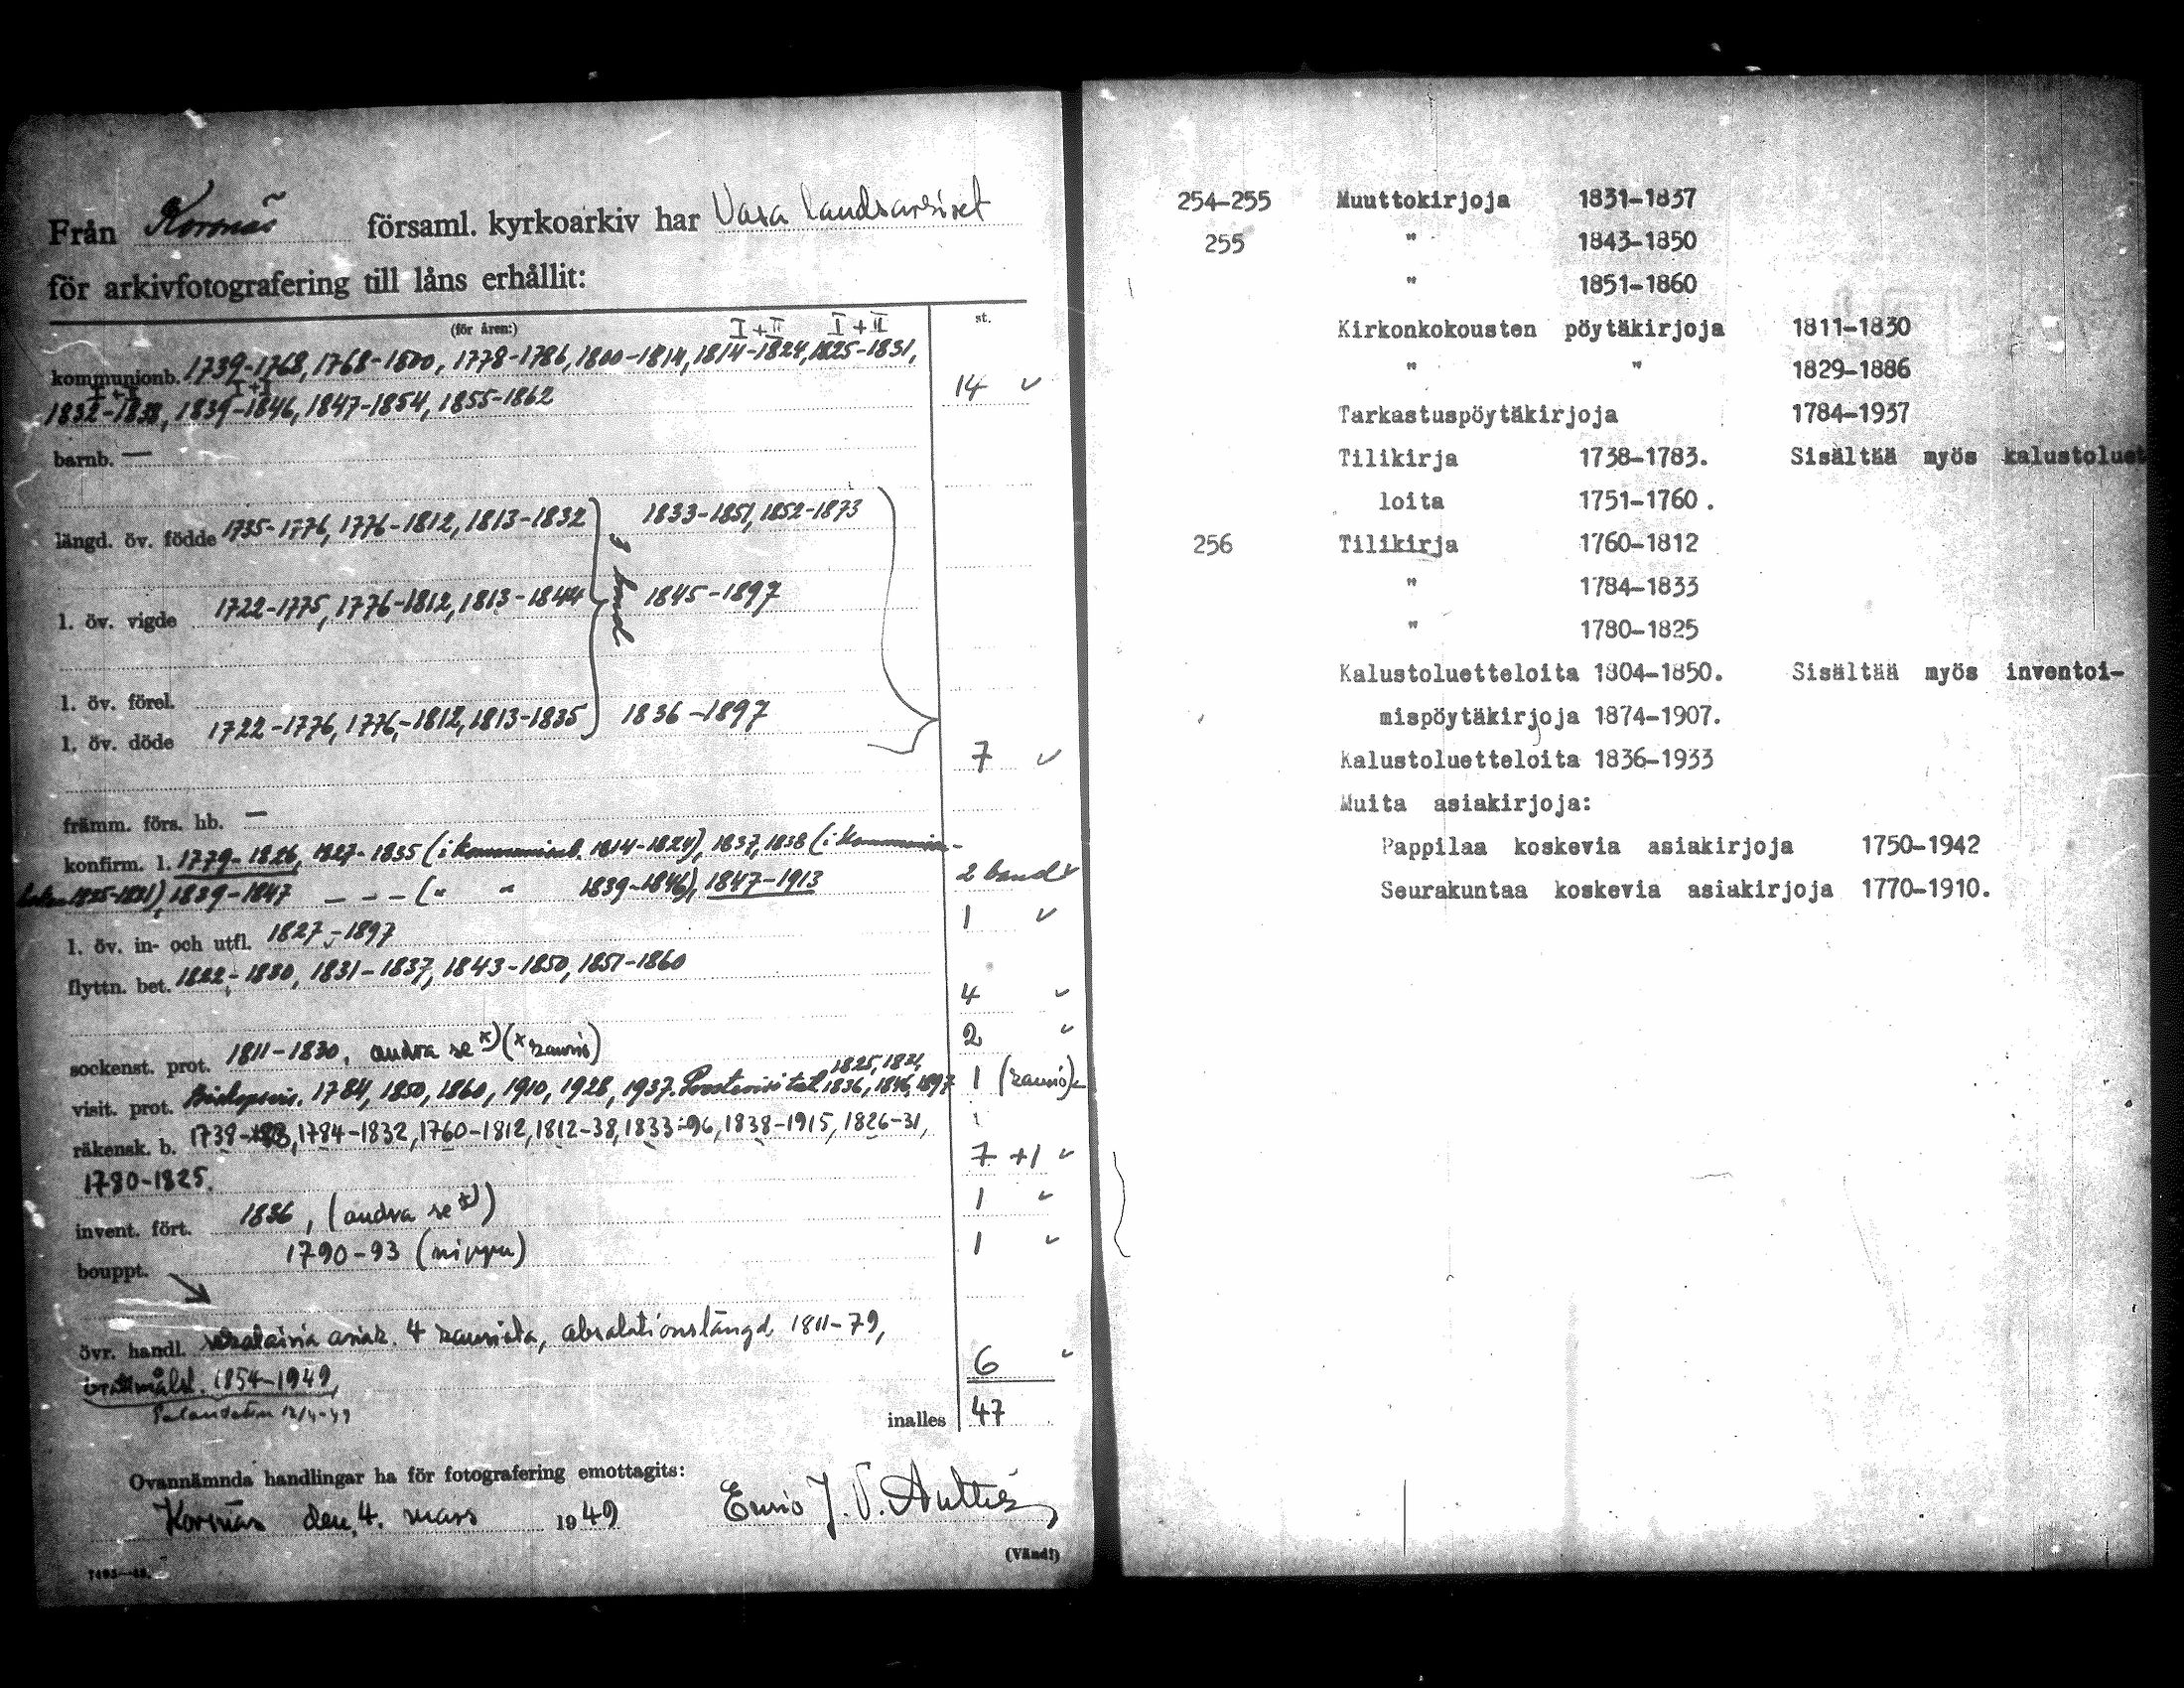 Från Korsnäs församl. kyrkoarkiv har Vasa landsarkivet
för arkivfotografering till låns erhållit:
(för åren:) st.
I+II I+II
kommunionb. 1739-1768, 1768-1800, 1778-1786, 1800-1814, 1814-1824, 1825-1831,
I+II I+II
1832-1838, 1839-1846, 1847-1854, 1855-1862 14 ✓
barnb. —
längd. öv. födde 1735-1776, 1776-1812, 1813-1832 1833-1851, 1852-1873
3 band
l. öv. vigde 1722-1775, 1776-1812, 1813-1844 1845-1897
l. öv. förel.
l. öv. döde 1722-1776, 1776-1812, 1813-1835 1836-1897
7 ✓
främm. förs. hb. —
konfirm. l. 1779-1826, 1827-1835 (i kommunionb. 1814-1824), 1837, 1838 (i kommunion-
boken 1825-1831), 1839-1847 — — — (" " 1839-1846), 1847-1913 2 band ✓
l. öv. in- och utfl. 1827-1897 1 ✓
flyttn. bet. 1822-1830, 1831-1837, 1843-1850, 1851-1860
4 ✓
sockenst. prot. 1811-1830, andra se x) 2 ✓
1825, 1831,
visit. prot. Biskopsvis. 1784, 1850, 1860, 1910, 1928, 1937. Prostvisitat. 1836, 1846, 1897 1
räkensk. b. 1738-83, 1784-1832, 1760-1812, 1812-38, 1833-96, 1838-1915, 1826-31,
1780-1825. 7 +1 ✓
invent. fört. 1836, (andra se x) 1 ✓
bouppt. 1790-93 (nippu) 1 ✓
övr. handl. sekalaisia asiak. 4 , absolutionslängd 1811-79,
1854-1949, 6 ✓
12/4-49
inalles 47
Ovannämnda handlingar ha för fotografering emottagits:
Korsnäs den 4. mars 1949
(Vänd!)
254-255 Muuttokirjoja 1831-1837
255 " 1843-1850
" 1851-1860
Kirkonkokousten pöytäkirjoja 1811-1830
" " 1829-1886
Tarkastuspöytäkirjoja 1784-1937
Tilikirja 1738-1783. Sisältää myös kalustoluet
loita 1751-1760.
256 Tilikirja 1760-1812
" 1784-1833
" 1780-1825
Kalustoluetteloita 1804-1850. Sisältää myös inventoi-
mispöytäkirjoja 1874-1907.
Kalustoluetteloita 1836-1933
Muita asiakirjoja:
Pappilaa koskevia asiakirjoja 1750-1942
Seurakuntaa koskevia asiakirjoja 1770-1910.